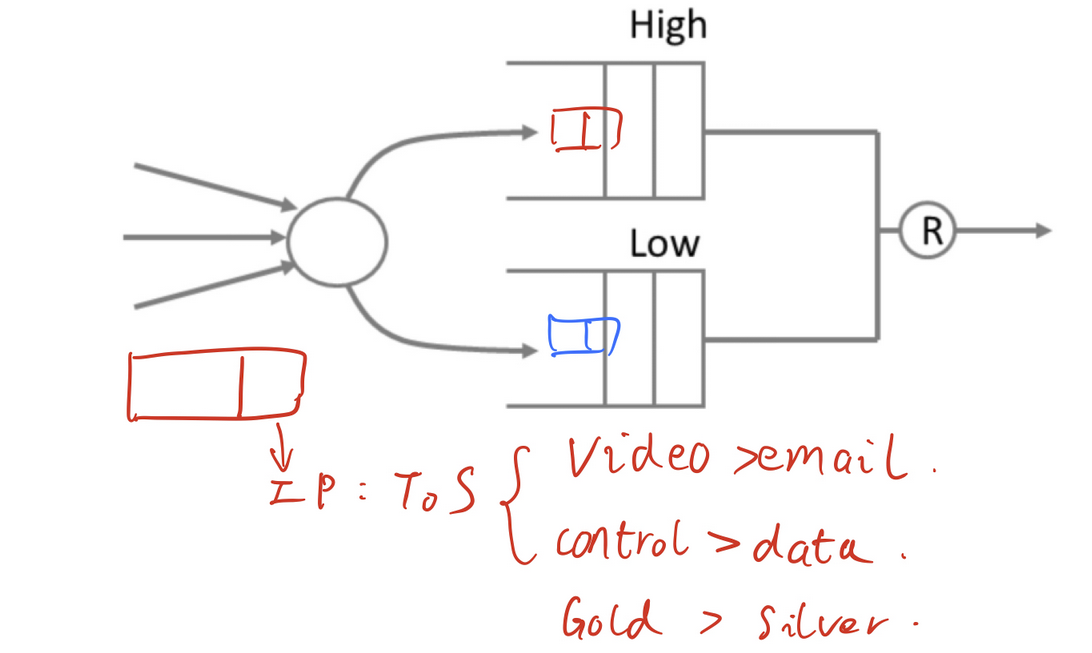 High
Low
R
IP: ToS
Video > email.
control > data.
Gold > silver.